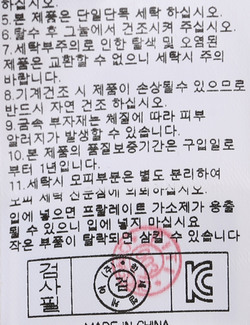 하십시오.
5.본 제품은 단일단독 세탁 하십시오.
6.탈수 후 그늘에서 건조시켜 주십시오.
7.세탁부주의로 인한 탈색 및 오염된
제품은 교환할 수 없으니 세탁시 주의
바랍니다.
8.기계건조 시 제품이 손상될수 있으므로
반드시 자연 건조 하십시오.
9.금속 부자재는 체질에 따라 피부
알러지가 발생할 수 있습니다.
10.본 제품의 품질보증기간은 구입일로
부터 1년입니다.
11.세탁시 모피부분은 별도 분리하여
모피 세탁 전문점에 의뢰하십시오.
입에 넣으면 프탈레이트 가소제가 용출
될 수 있으니 입에 넣지 마십시요
작은 부품이 탈락되면 삼킬 수 있습니다
검사필
검
KC
MADE IN CHINA